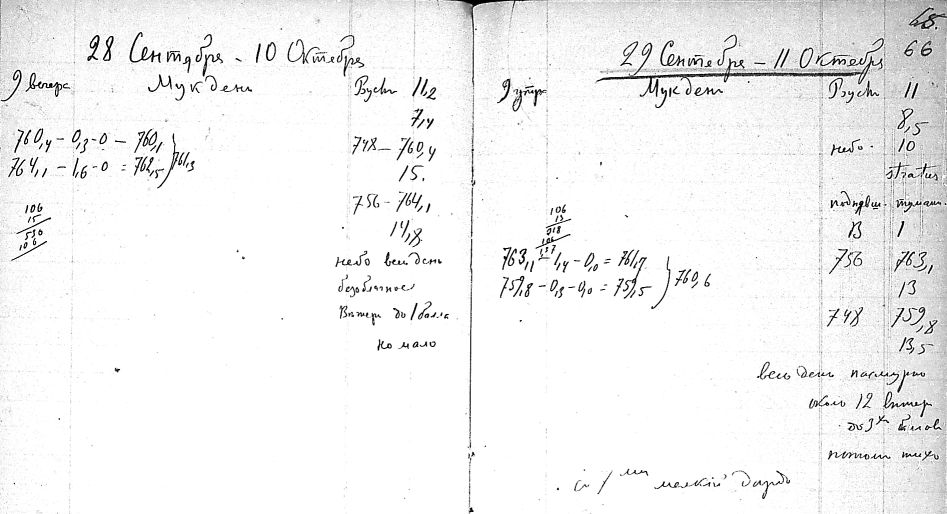 28 Сентября - 10 Октебря
9 вечера Мукден Псусm 11,2
7,4
760,4 - 0,3 - 0 - 760,1
764,1 - 1,6 - 0 = 762,5 } 761,3
748 - 760,4
15.
756 - 764,1
14,8
106
15
530
106
небо весь день
безоблачное
Ветер до 1 балла
но мало
68.
66
29 Сентебря - 11 Октебря
9 утра Мукден 11
8,5
небо - 10
stratus
туман.
В 1
106
13
318
106
137
763,1 - 1,4 - 0,0 = 761,7
759,8 - 0,3 - 0,0 = 759,5 } 760,6
756 763,1
13
748 759,8
13,5
весь день пасмурно
около 12 ветер
до 3х балов
потом тихо
мелкий дождь